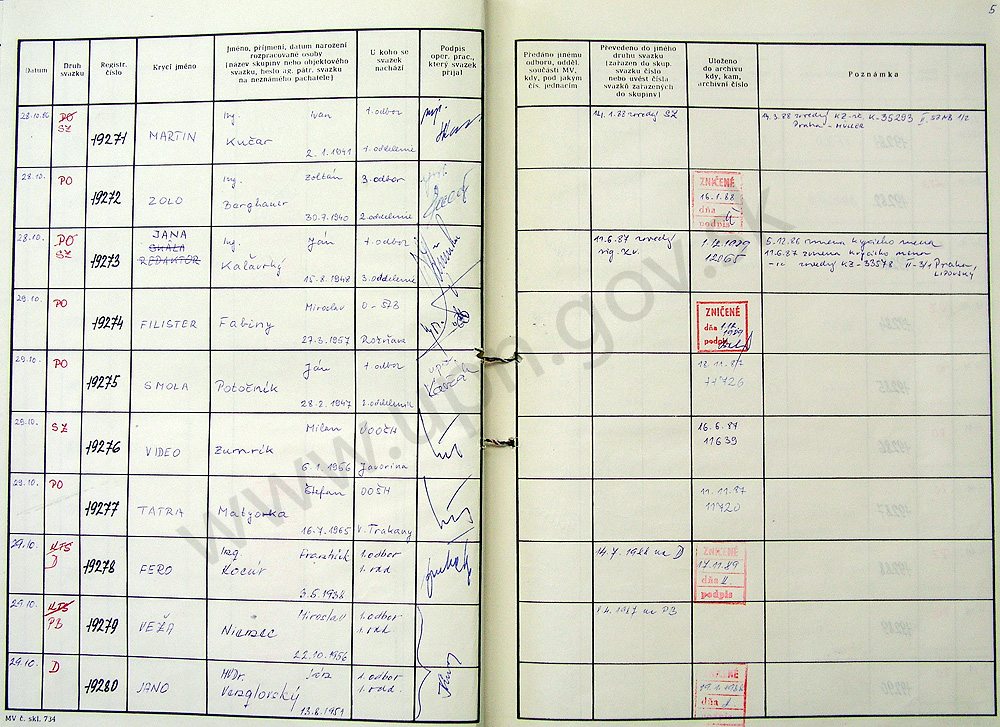 5
Datum
Druh svazku
Registr. číslo
Krycí jméno
Jméno, příjmení, datum narození
rozpracované osoby
(název skupiny nebo objektového
svazku, heslo ag. pátr. svazku
na neznámého pachatele)
U koho se
svazek
nachází
Podpis
oper. prac.,
který svazek
přijal
Předáno jinému
odboru, odděl.
součásti MV,
kdy, pod jakým
čís. jednacím
Převedeno do jiného
druhu svazku
(zařazen do skup.
svazku číslo
nebo uvést čísla
svazků zařazených
do skupiny)
Uloženo
do archivu
kdy, kam,
archivní číslo
Poznámka
28.10.86 PO Ing. Ivan 1. odbor
SZ 19271 MARTIN Kučar
2.1.1941 1. oddelenie
14.1.88 zvedený SZ
14.3.88 zvedený KZ-re, K-35293
Praha - MÜLLER
28.10. PO Ing. Zoltán 3. odbor
19272 ZOLO Berghauer
30.7.1940 2. oddelenie
ZNIČENÉ
16.1.88
dňa
podpis
28.10. PO JANA Ing. Ján 1. odbor
SZ SKÁLA
19273 REDAKTOR Kalavský
15.8.1948 3. oddelenie
11.6.87 zvedený
1.12.1989
12065
5.12.86 zmena krycieho mena
11.6.87 zmena krycieho mena
zvedený KZ-33578 II-3/1 Praha,
LIPOVSKÝ
29.10. PO Miroslav O-ŠTB
19274 FILISTER Fabiny
27.3.1957 Rožňava
ZNIČENÉ
dňa 1.12.
1989
podpis
29.10. PO Ján 1. odbor
19275 SMOLA Potočník
28.2.1947 2. oddelenie
18.11.87
11726
29.10. SZ Milan OOŠH
19276 VIDEO Zumrík
6.1.1956 Javorina
16.6.87
11639
29.10. PO Štefan OOŠH
19277 TATRA Matyorka
16.7.1965 V. Trakany
11.11.87
11720
29.10. NTS Ing. František 1. odbor
D 19278 FERO Kocúr 1. odd
3.5.1938
14.7.1988 na D
ZNIČENÉ
17.11.89
dňa
podpis
29.10. NTS Miroslav 1. odbor
PB 19279 VEŽA Niemec 1. odd.
22.10.1956
1.4.1987 na PB
29.10. D MVDr. 1. odbor
19280 JANO Verglovský 1. odd.
13.8.1951
19.1.1988
dňa
podpis
MV č. skl. 734
www.upn.gov.sk